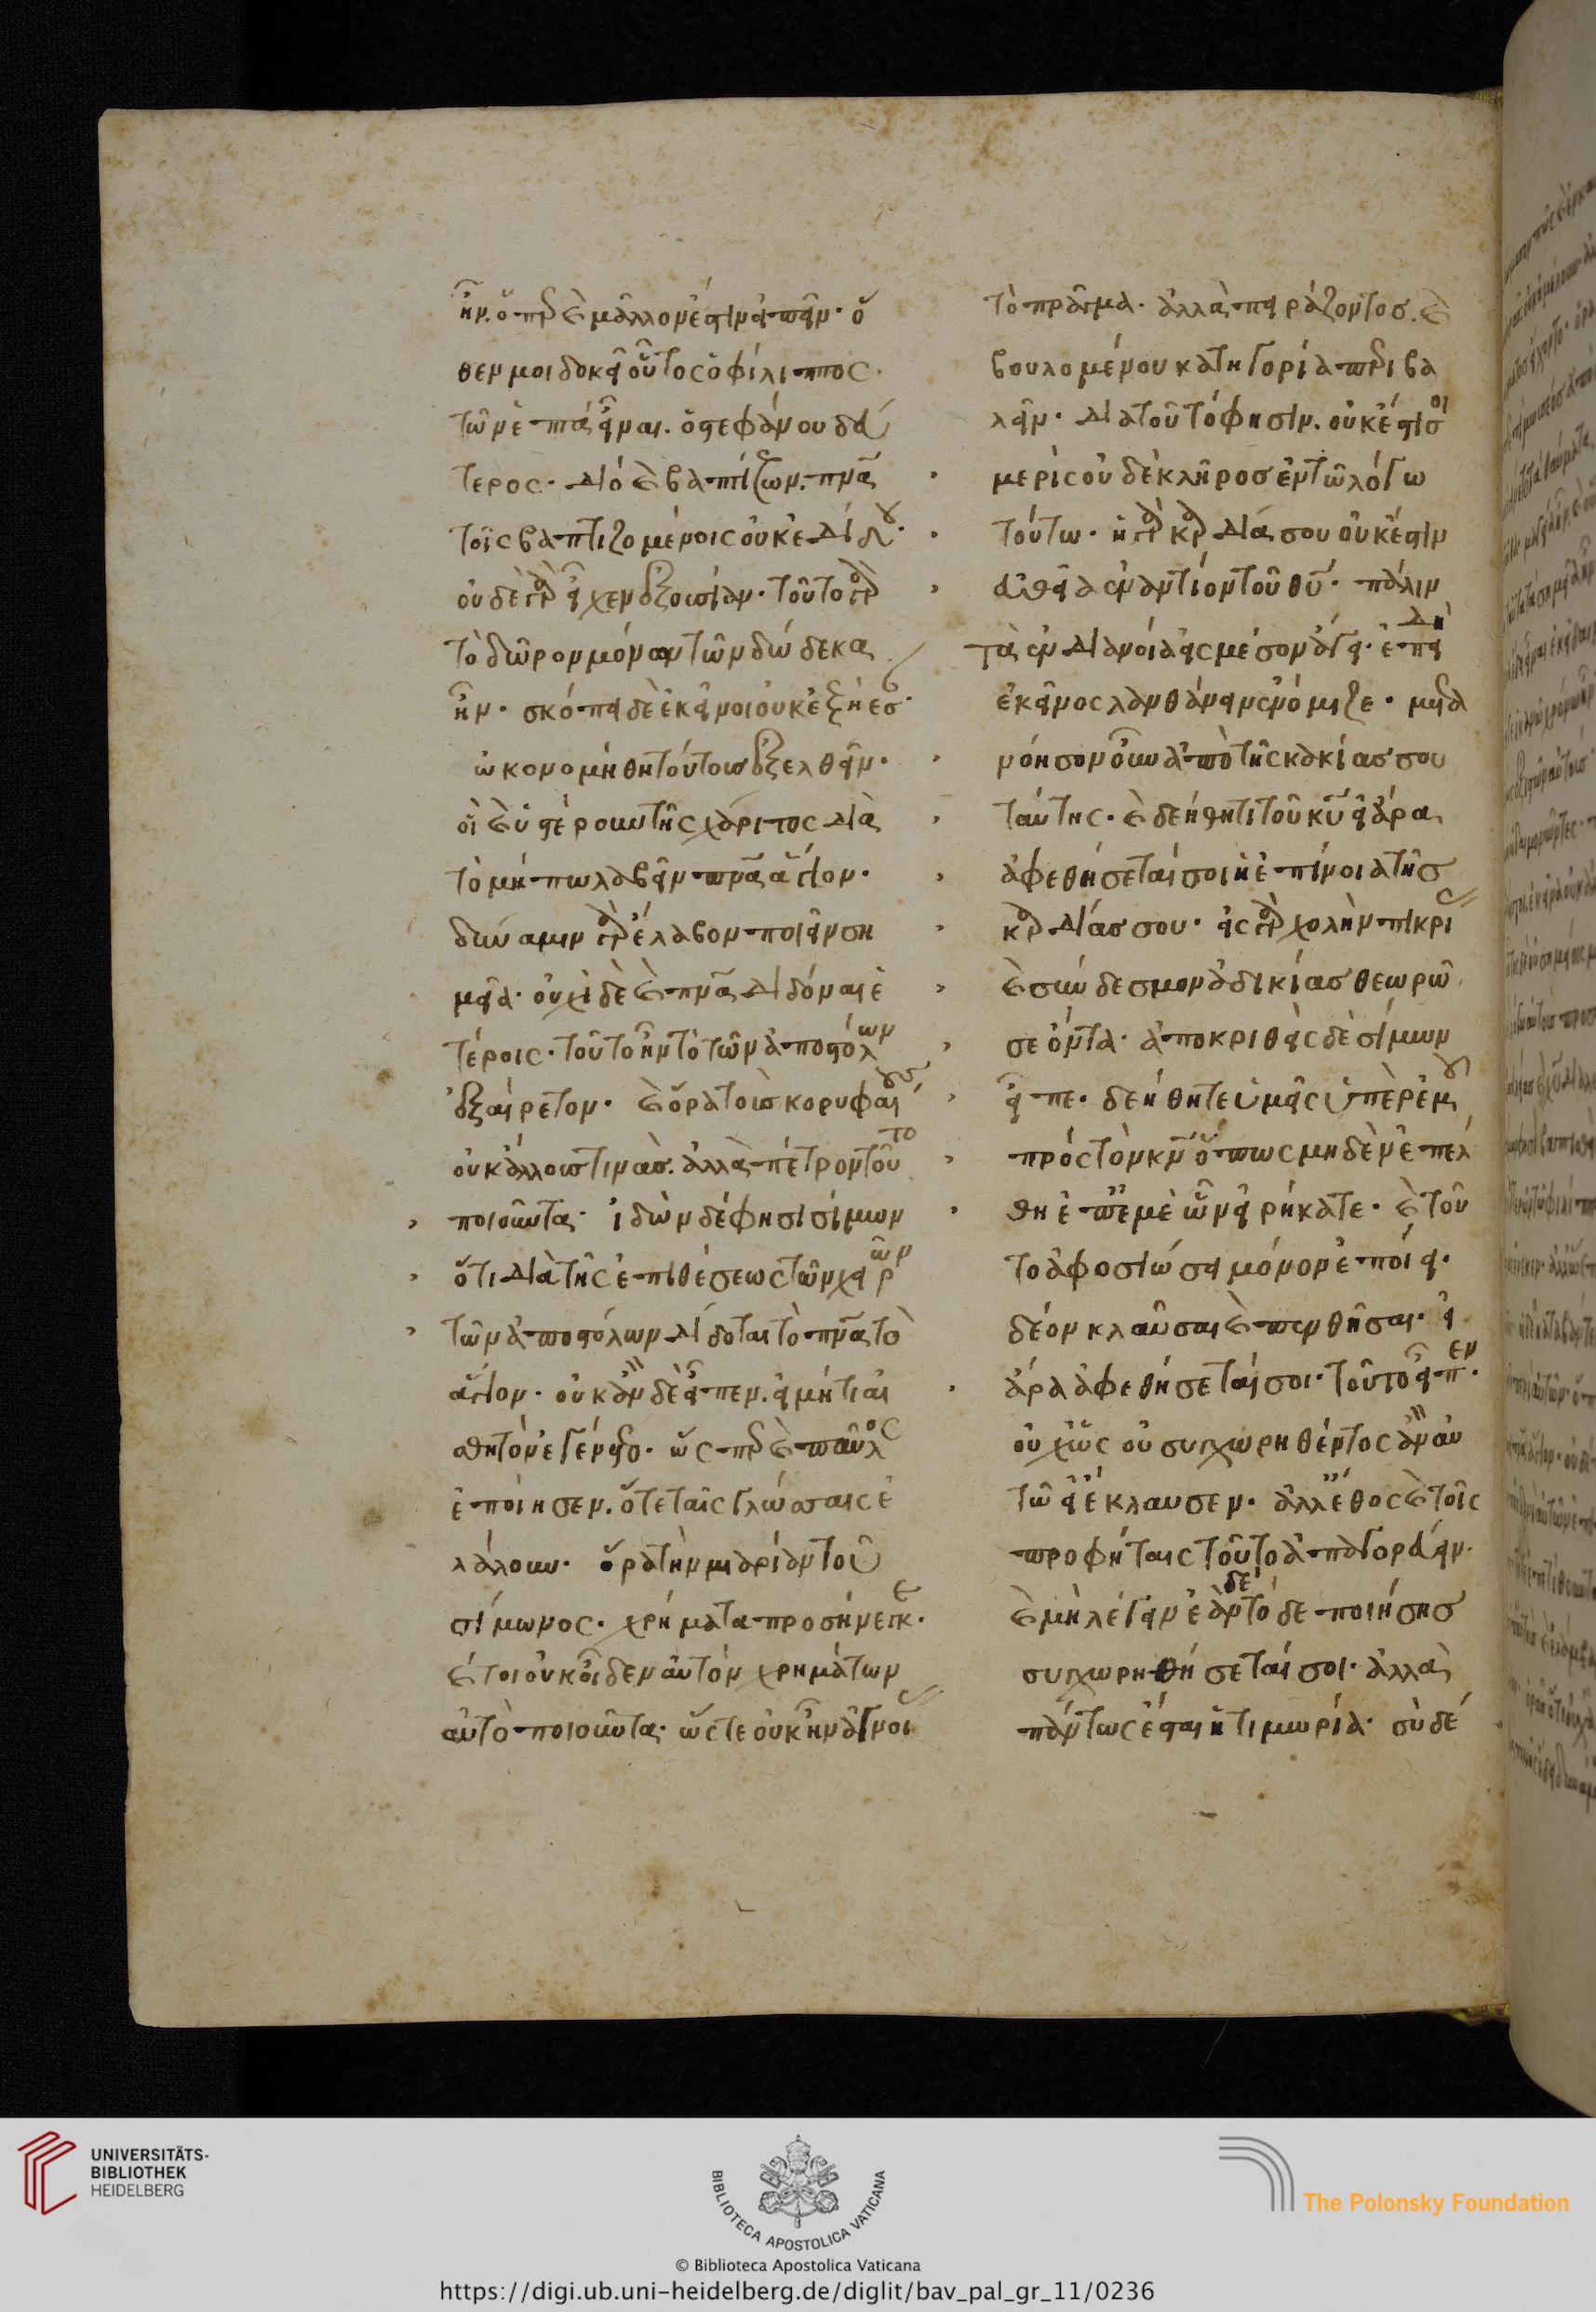 ἦν. ὅπερ καὶ μᾶλλον ἔστιν εἰπεῖν· ὅ
θεν μοι δοκεῖ οὗτος ὁ φίλιππος
τῶν ἑπτὰ εἶναι. ὁ στεφάνου δεύ
τερος. διὸ καὶ βαπτίζων. πνᾶ
τοῖς βαπτιζομένοις οὐκ ἐδίδου·
οὐδὲ γὰρ εἶχεν ἐξουσίαν. τοῦτο γὰρ
τὸ δῶρον μόνων τῶν δώδεκα
ἦν. σκόπει δὲ ἐκεῖνοι οὐκ ἐξήεσ·
ὠκονομήθη τούτοις ἐξελθεῖν·
οἳ καὶ ὑστέρουν τῆς χάριτος διὰ
τὸ μήπω λαβεῖν πνᾶ ἅγιον.
δύναμιν γὰρ ἔλαβον ποιεῖν ση
μεῖα· οὐχὶ δὲ καὶ πνᾶ διδόναι ἑ
τέροις. τοῦτο ἦν τὸ τῶν ἀποστόλων
ἐξαίρετον. καὶ ὅρα τοὺς κορυφαίους
οὐκ ἄλλους τινὰς. ἀλλὰ πέτρον τοῦτο
ποιοῦντα· ἰδὼν δέ φησι σίμων
ὅτι διὰ τῆς ἐπιθέσεως τῶν χειρῶν
τῶν ἀποστόλων δίδοται τὸ πνᾶ τὸ
ἅγιον. οὐκ ἂν δὲ εἶπεν. εἰ μή τι αἰ
σθητὸν ἐγένετο. ὥσπερ καὶ παῦλος
ἐποίησεν. ὅτε ταῖς γλώσσαις ἐ
λάλουν. ὅρα τὴν μιαρίαν τοῦ
σίμωνος. χρήματα προσήνεγκε.
καίτοι οὐκ οἶδεν αὐτὸν χρημάτων
αὐτὸ ποιοῦντα. ὥστε οὐκ ἦν ἀγνοί
τὸ πρᾶγμα. ἀλλὰ πειράζοντος. καὶ
βουλομένου κατηγορία περιβα
λεῖν. διατοῦτό φησιν. οὐκ ἔστι σοι
μερὶς οὐδὲ κλῆρος ἐν τῶ λόγω
τούτω. ἡ γὰρ καρδία σου οὐκ ἔστιν
εὐθεῖα ἐναντίον τοῦ θῦ. πάλιν
τὰ ἐν διανοία εἰς μέσον ἄγει. ἐπειδὴ
ἐκεῖνος λανθάνειν ἐνόμιζε. μετα
νόησον οὖν ἀπὸ τῆς κακίας σου
ταύτης. καὶ δεήθητι τοῦ κῦ εἰ ἄρα
ἀφεθήσεταί σοι ἡ ἐπίνοια τῆς
καρδίας σου. εἰς γὰρ χολὴν πικρίας
καὶ σύνδεσμον ἀδικίας θεωρῶ
σε ὄντα. ἀποκριθεὶς δὲ σίμων
εἶπε. δεήθητε ὑμεῖς ὑπὲρ ἐμοῦ
πρὸς τὸν κν ὅπως μηδὲν ἐπέλ
θη ἐπεμὲ ὧν εἰρήκατε. καὶ τοῦ
το ἀφοσιώσει μόνον ἐποίει.
δέον κλαῦσαι καὶ πενθῆσαι. εἰ
ἄρα ἀφεθήσεταί σοι. τοῦτο εἶπεν.
οὐχ ὡς οὐ συγχωρηθέντος ἂν αὐ
τῶ εἰ ἔκλαυσεν. ἀλλ ἔθος καὶ τοῖς
προφήταις τοῦτο ἀπαγορεύειν.
καὶ μὴ λέγειν ἐὰν δὲ τόδε ποιήσης
συγχωρηθήσεταί σοι. ἀλλὰ
πάντως ἔσται ἡ τιμωρία. σὺ δέ
UNIVERSITÄTS-
BIBLIOTHEK
HEIDELBERG
BIBLIOTECA APOSTOLICA VATICANA
The Polonsky Foundation
© Biblioteca Apostolica Vaticana
https://digi.ub.uni-heidelberg.de/diglit/bav_pal_gr_11/0236